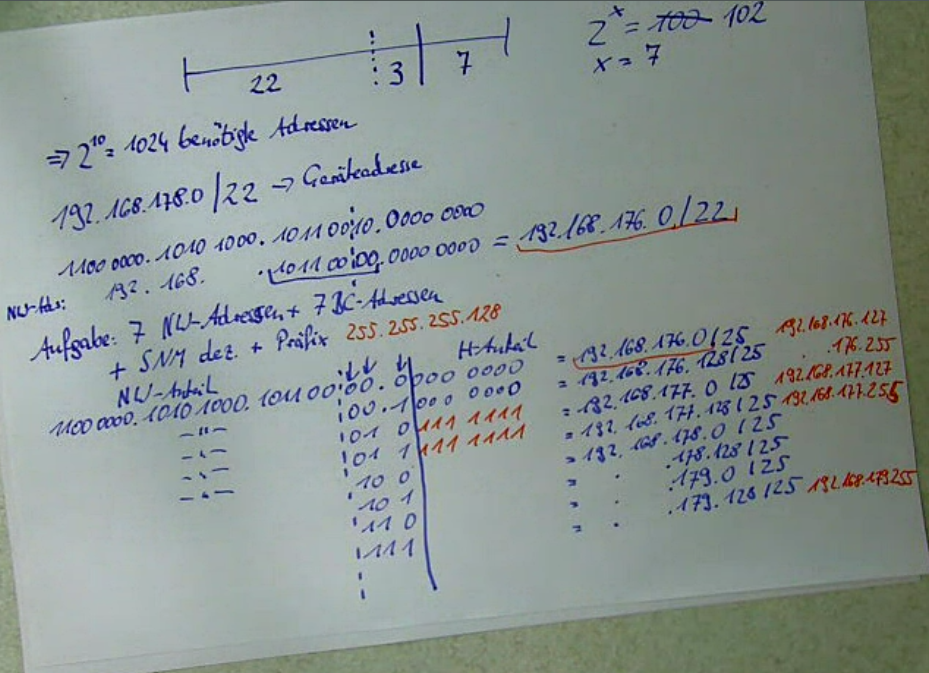 22 3 7
2^x = 100 102
x = 7
⇒ 2^10 = 1024 benötigte Adressen
192.168.178.0 /22 → Geräteadresse
1100 0000. 1010 1000. 1011 0010. 0000 0000
NW-Adr: 192. 168. .1011 0000.0000 0000 = 192.168.176.0/22
Aufgabe: 7 NW-Adressen + 7 BC-Adressen
+ SNM dez. + Präfix 255.255.255.128
NW-Anteil H-Anteil
1100 0000.1010 1000.1011 00 00.0 000 0000 = 192.168.176.0/25 192.168.176.127
-"- 00.1 000 0000 = 192.168.176.128/25 .176.255
-"- 01 0 111 1111 = 192.168.177.0/25 192.168.177.127
-"- 01 1 111 1111 = 192.168.177.128/25 192.168.177.255
-"- 10 0 = 192.168.178.0/25
10 1 = . .178.128/25
11 0 = . .179.0/25
111 = . .179.128/25 192.168.179255